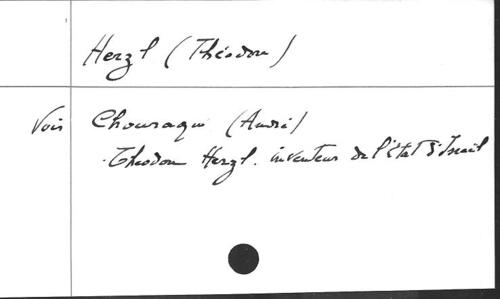 Herzl (Théodore)
Voir Chouraqui (André)
Théodore Herzl. inventeur de l'État d'Israël